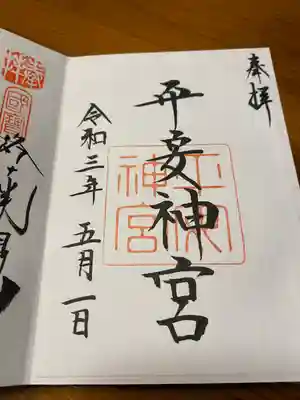 奉拝
平安神宮
平安
神宮
令和三年 五月一日